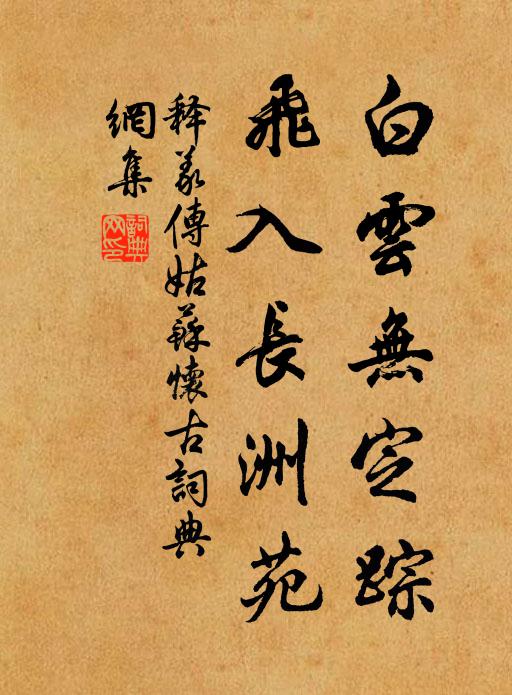 白雲無定踪
飛入長洲苑
释義傳姑蘇懷古詞典
網集
詞典
网印